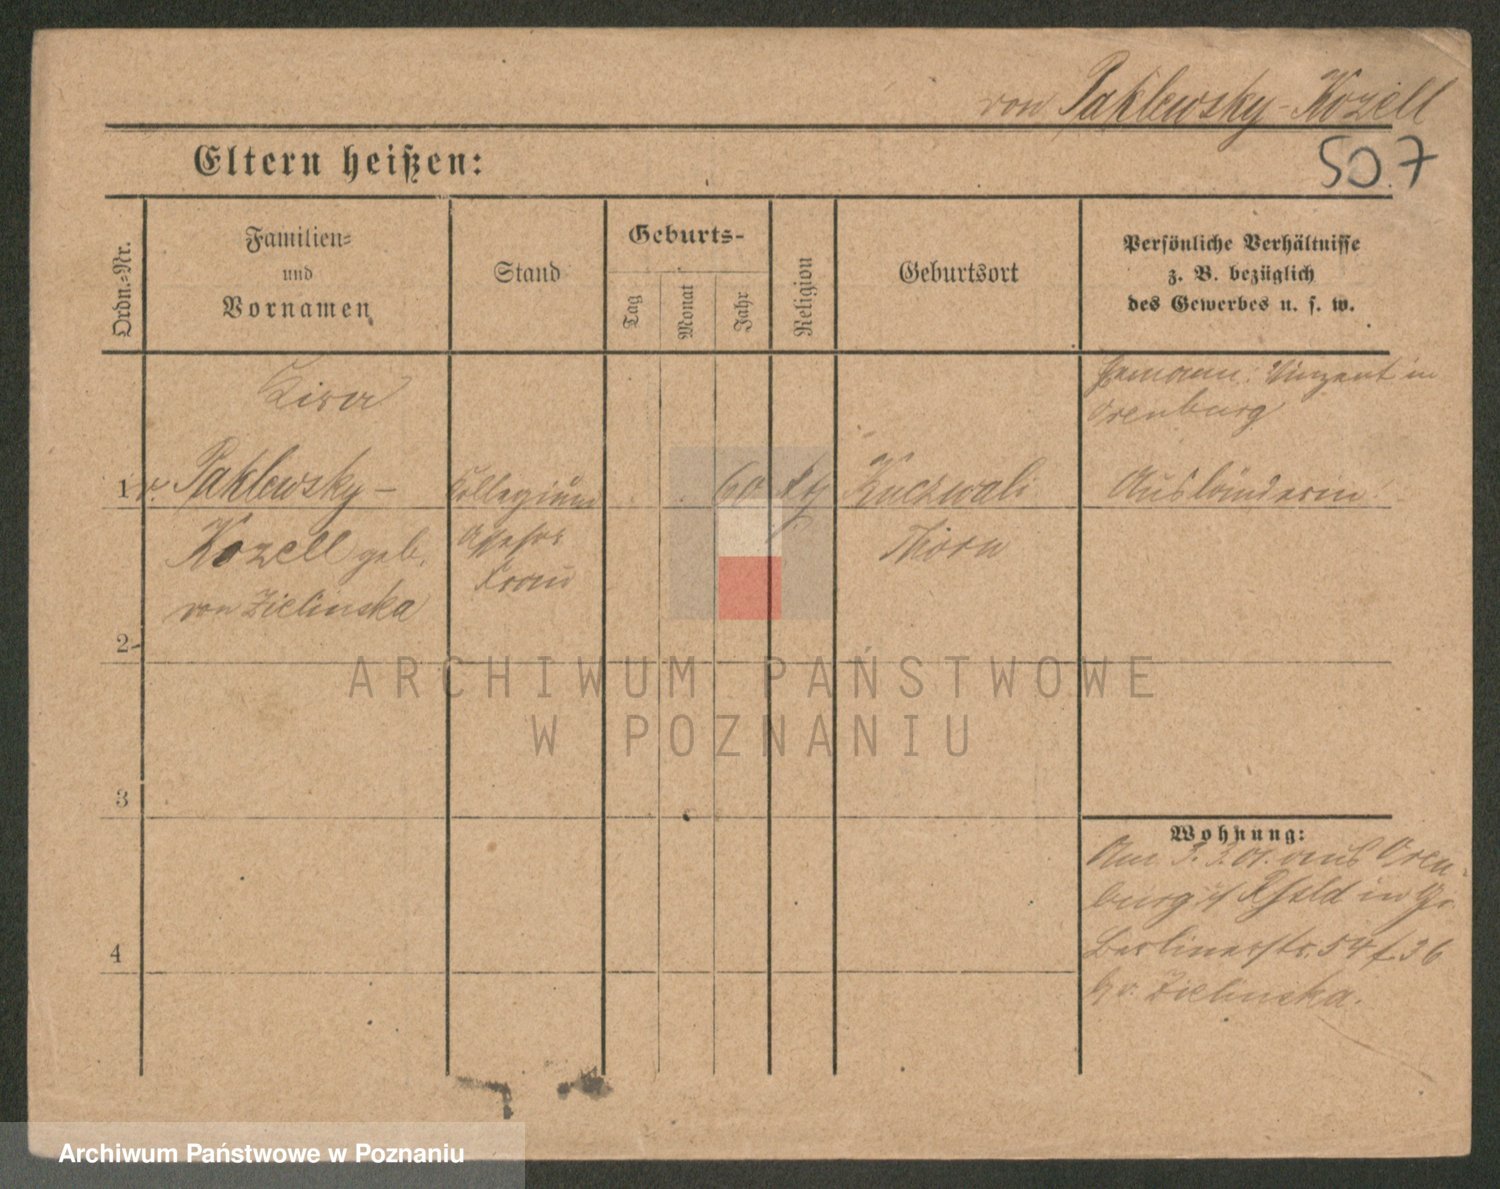 von Paklewsky-Kozell
Eltern heißen:
507
Ordn.-Nr.
Familien-
und
Vornamen
Stand
Geburts-
Tag
Monat
Jahr
Religion
Geburtsort
Persönliche Verhältnisse
z. B. bezüglich
des Gewerbes u. s. w.
Vinzent in
Orenburg
1 v. Paklewsky-
Kozell geb.
von Zielinska
Collegium
Assessor
Frau
60
Kuczwali
Thorn
Ausländerin
2
3
4
Wohnung:
Am 3. 3. 01. aus Oren-
burg
Berlinerstr. 54
b v. Zielinska.
ARCHIWUM PAŃSTWOWE
W POZNANIU
Archiwum Państwowe w Poznaniu